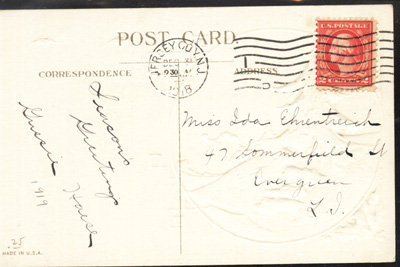 POST CARD
CORRESPONDENCE
ADDRESS
JERSEY CITY, N.J.
DEC
930
1918
U.S. POSTAGE
2 CENTS 2
Seasons
Greetings
Gussie
1919
Miss Ida Ehrentreich
47 Sommerfield St
Evergreen
L.I.
.25
MADE IN U.S.A.